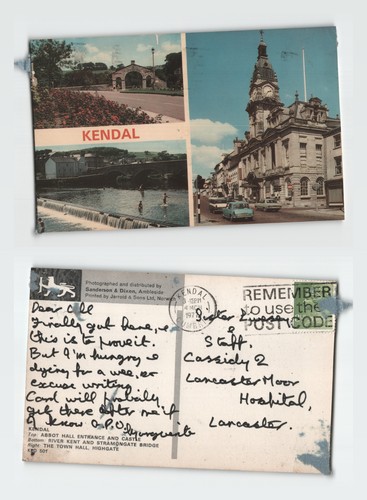 KENDAL
Photographed and distributed by
Sanderson & Dixon, Ambleside
Printed by Jarrold & Sons Ltd, Norwich
Dear All
Finally got here, &
this is to prove it.
But I'm hungry &
dying for a wee, so
excuse writing.
Card will probably
get there after me if
I know G.P.O.
Marguerite
KENDAL
Top: ABBOT HALL ENTRANCE AND CASTLE
Bottom: RIVER KENT AND STRAMONGATE BRIDGE
Right: THE TOWN HALL, HIGHGATE
KENDAL
197
REMEMBER
to use the
POST CODE
Sister
&
Staff.
Cassidy 2
Lancaster Moor
Hospital,
Lancaster.